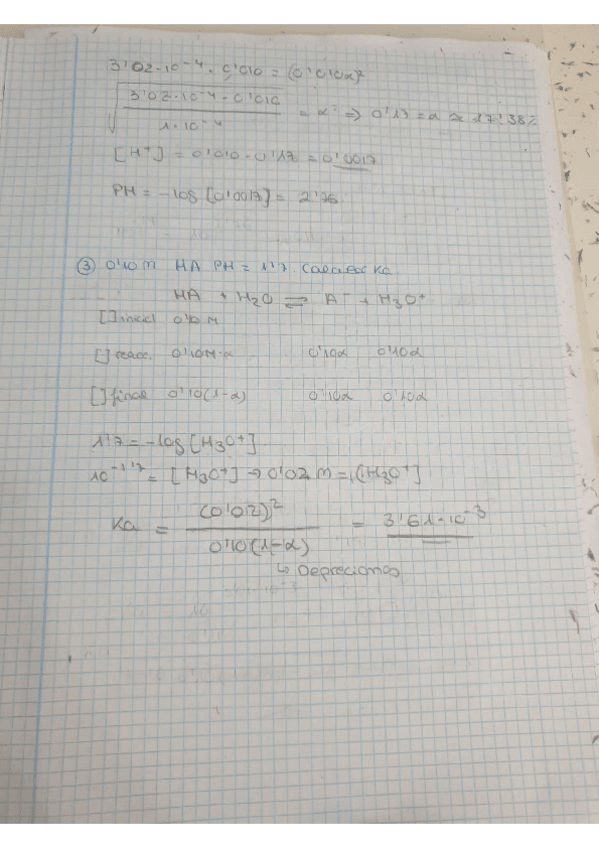 3'02·10⁻⁴ · 0'010 = (0'010α)²
√(3'02·10⁻⁴ · 0'010 / 1·10⁻⁴) = α ⇒ 0'17 = α ≈ 17'38%
[H⁺] = 0'010 · 0'17 = 0'0017
PH = -log [0'0017] = 2'76
③ 0'10 M HA PH = 1'7. Calcular Ka.
HA + H₂O ⇌ A⁻ + H₃O⁺
[ ] inicial 0'10 M
[ ] reacc. 0'10M·α 0'10α 0'10α
[ ] final 0'10(1-α) 0'10α 0'10α
1'7 = -log [H₃O⁺]
10⁻¹'⁷ = [H₃O⁺] → 0'02 M = [H₃O⁺]
Ka = (0'02)² / 0'10(1-α) = 3'61·10⁻³
↳ Depreciamos